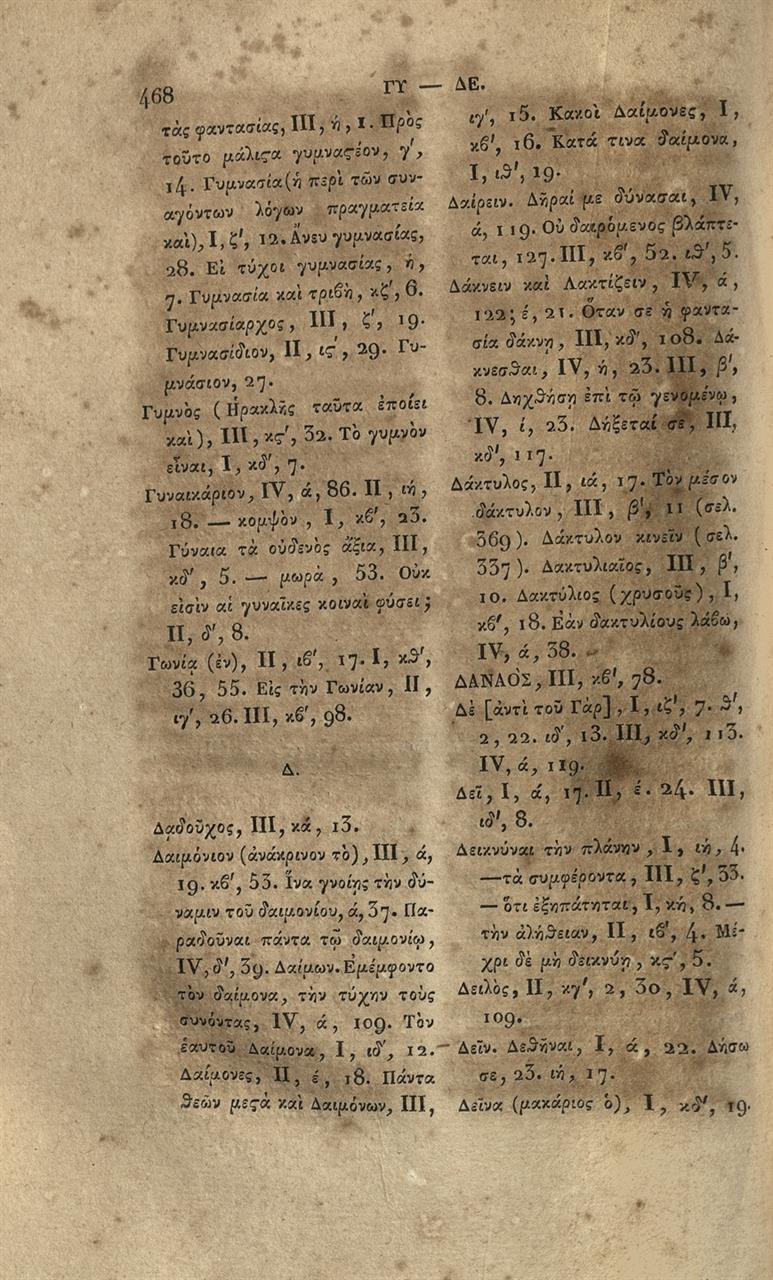 468
ΓΥ — ΔΕ.
τὰς φαντασίας, III, ή, 1. Πρὸς
τοῦτο μάλιϛα γυμναϛέον, γ′,
14. Γυμνασία (ἡ περὶ τῶν συν-
αγόντων λόγων πραγματεία
καὶ), I, ζ′, 12. Ἄνευ γυμνασίας,
28. Εἰ τύχοι γυμνασίας, ή,
7. Γυμνασία καὶ τριβὴ, κζ′, 6.
Γυμνασίαρχος, III, ζ′, 19.
Γυμνασίδιον, II, ιϛ′, 29. Γυ-
μνάσιον, 27.
Γυμνὸς (Ἡρακλῆς ταῦτα ἐποίει
καὶ), III, κϛ′, 32. Τὸ γυμνὸν
εἶναι, I, κδ′, 7.
Γυναικάριον, IV, ά, 86. II, ιή,
18. — κομψὸν, I, κβ′, 23.
Γύναια τὰ οὐδενὸς ἄξια, III,
κδ′, 5. — μωρὰ, 53. Οὐκ
εἰσὶν αἱ γυναῖκες κοιναὶ φύσει;
II, δ′, 8.
Γωνίᾳ (ἐν), II, ιβ′, 17. I, κθ′,
36, 55. Εἰς τὴν Γωνίαν, II,
ιγ′, 26. III, κβ′, 98.
Δ.
Δᾳδοῦχος, III, κά, 13.
Δαιμόνιον (ἀνάκρινον τὸ), III, ά,
19. κβ′, 53. Ἵνα γνοίης τὴν δύ-
ναμιν τοῦ δαιμονίου, ά, 37. Πα-
ραδοῦναι πάντα τῷ δαιμονίῳ,
IV, δ′, 39. Δαίμων. Ἐμέμφοντο
τὸν δαίμονα, τὴν τύχην τοὺς
συνόντας, IV, ά, 109. Τὸν
ἑαυτοῦ Δαίμονα, I, ιδ′, 12.
Δαίμονες, II, έ, 18. Πάντα
θεῶν μεϛὰ καὶ Δαιμόνων, III,
ιγ′, 15. Κακοὶ Δαίμονες, I,
κβ′, 16. Κατά τινα δαίμονα,
I, ιθ′, 19.
Δαίρειν. Δῆραί με δύνασαι, IV,
ά, 119. Οὐ δαιρόμενος βλάπτε-
ται, 127. III, κβ′, 52. ιθ′, 5.
Δάκνειν καὶ Λακτίζειν, IV, ά,
122; έ, 21. Ὅταν σε ἡ φαντα-
σία δάκνῃ, III, κδ′, 108. Δά-
κνεσθαι, IV, ή, 23. III, β′,
8. Δηχθήσῃ ἐπὶ τῷ γενομένῳ,
IV, ί, 23. Δήξεταί σε, III,
κδ′, 117.
Δάκτυλος, II, ιά, 17. Τὸν μέσον
δάκτυλον, III, β′, 11 (σελ.
369). Δάκτυλον κινεῖν (σελ.
337). Δακτυλιαῖος, III, β′,
10. Δακτύλιος (χρυσοῦς), I,
κβ′, 18. Ἐὰν δακτυλίους λάβω,
IV, ά, 38.
ΔΑΝΑΟΣ, III, κβ′, 78.
Δὲ [ἀντὶ τοῦ Γὰρ], I, ιζ′, 7. θ′,
2, 22. ιδ′, 13. III, κδ′, 113.
IV, ά, 119.
Δεῖ, I, ά, 17. II, έ. 24. III,
ιδ′, 8.
Δεικνύναι τὴν πλάνην, I, ιή, 4.
— τὰ συμφέροντα, III, ζ′, 33.
— ὅτι ἐξηπάτηται, I, κή, 8. —
τὴν ἀλήθειαν, II, ιβ′, 4. Μέ-
χρι δὲ μὴ δεικνύῃ, κϛ′, 5.
Δειλὸς, II, κγ′, 2, 30, IV, ά,
109.
Δεῖν. Δεθῆναι, I, ά, 22. Δήσω
σε, 23. ιή, 17.
Δεῖνα (μακάριος ὁ), I, κδ′, 19.